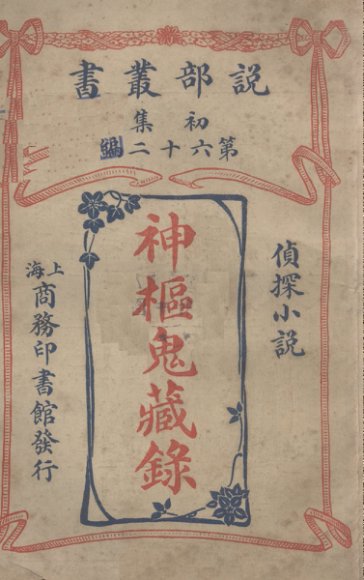 說部叢書
初集
第六十二編
偵探小說
神樞鬼藏錄
上海商務印書館發行